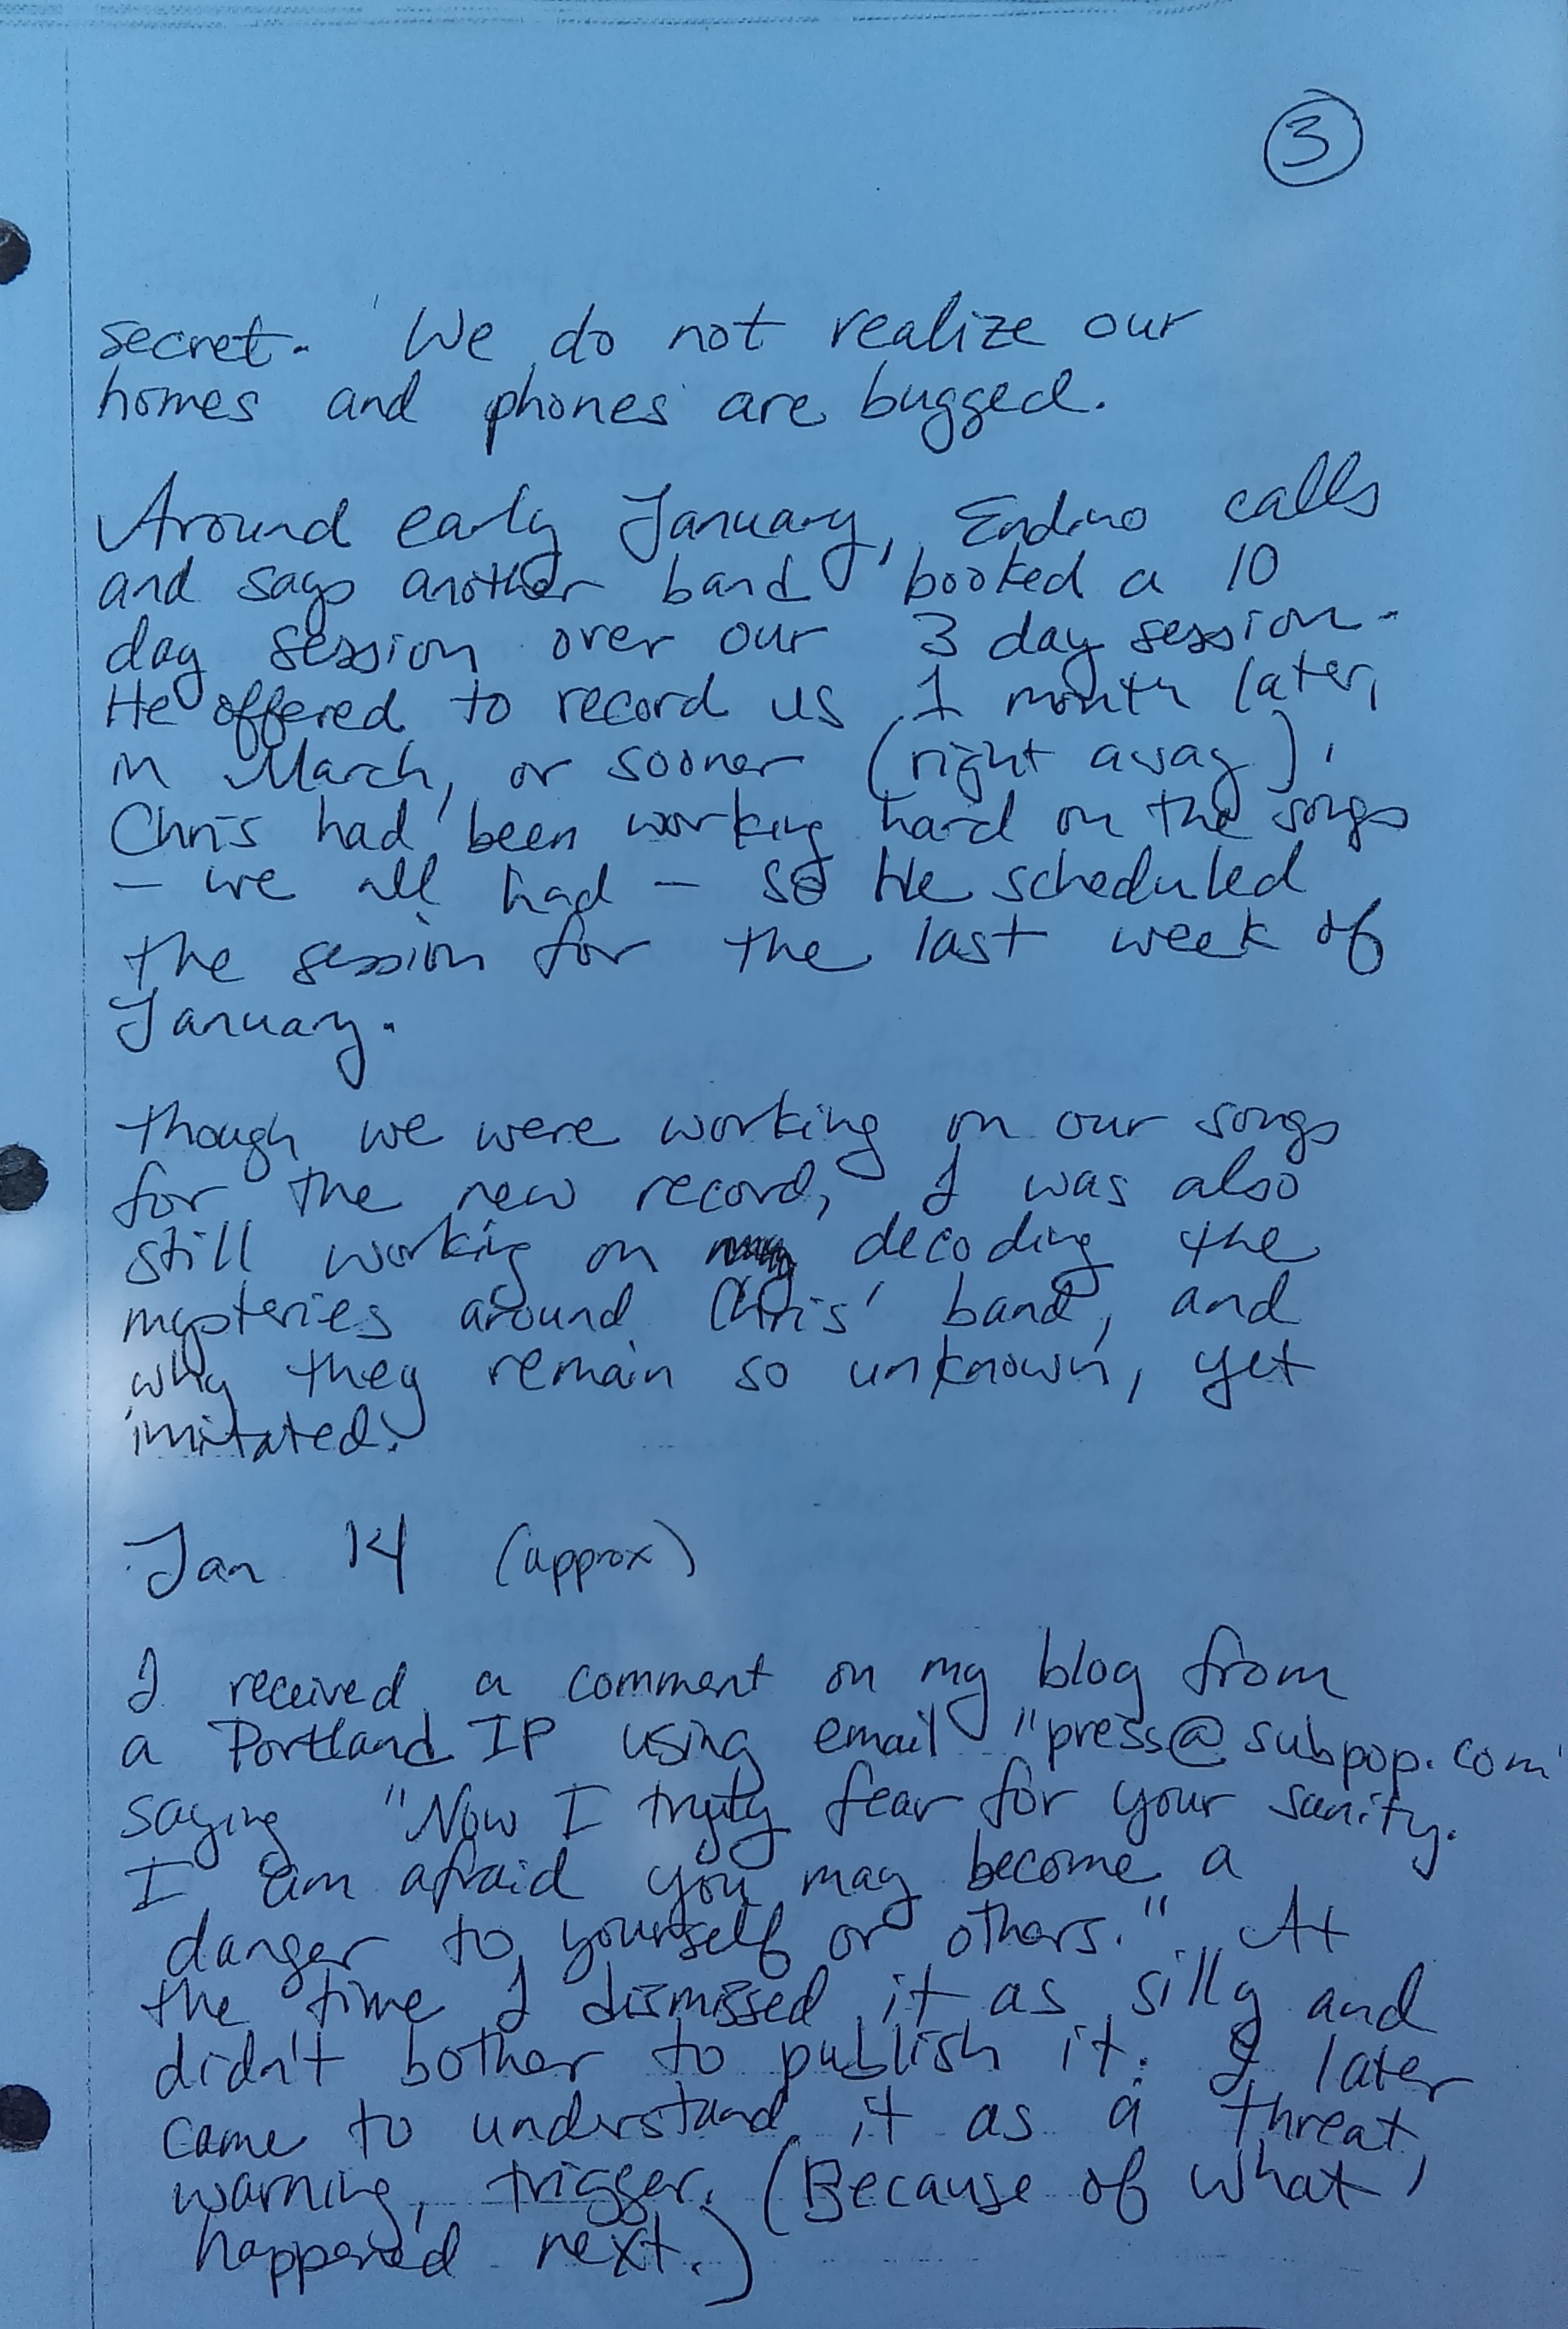 3
secret. We do not realize our
homes and phones are bugged.
Around early January, Endino calls
and says another band booked a 10
day session over our 3 day session.
He offered to record us 1 month later,
in March, or sooner (right away).
Chris had been working hard on the songs
— we all had — so He scheduled
the session for the last week of
January.
though we were working on our songs
for the new record, I was also
still working on decoding the
mysteries around Chris' band, and
why they remain so unknown, yet
imitated.
Jan 14 (approx)
I received a comment on my blog from
a Portland IP using email "press@subpop.com"
saying "Now I truly fear for your sanity.
I am afraid you may become a
danger to yourself or others." At
the time I dismissed it as silly and
didn't bother to publish it. I later
came to understand it as a threat,
warning, trigger. (Because of what
happened next.)